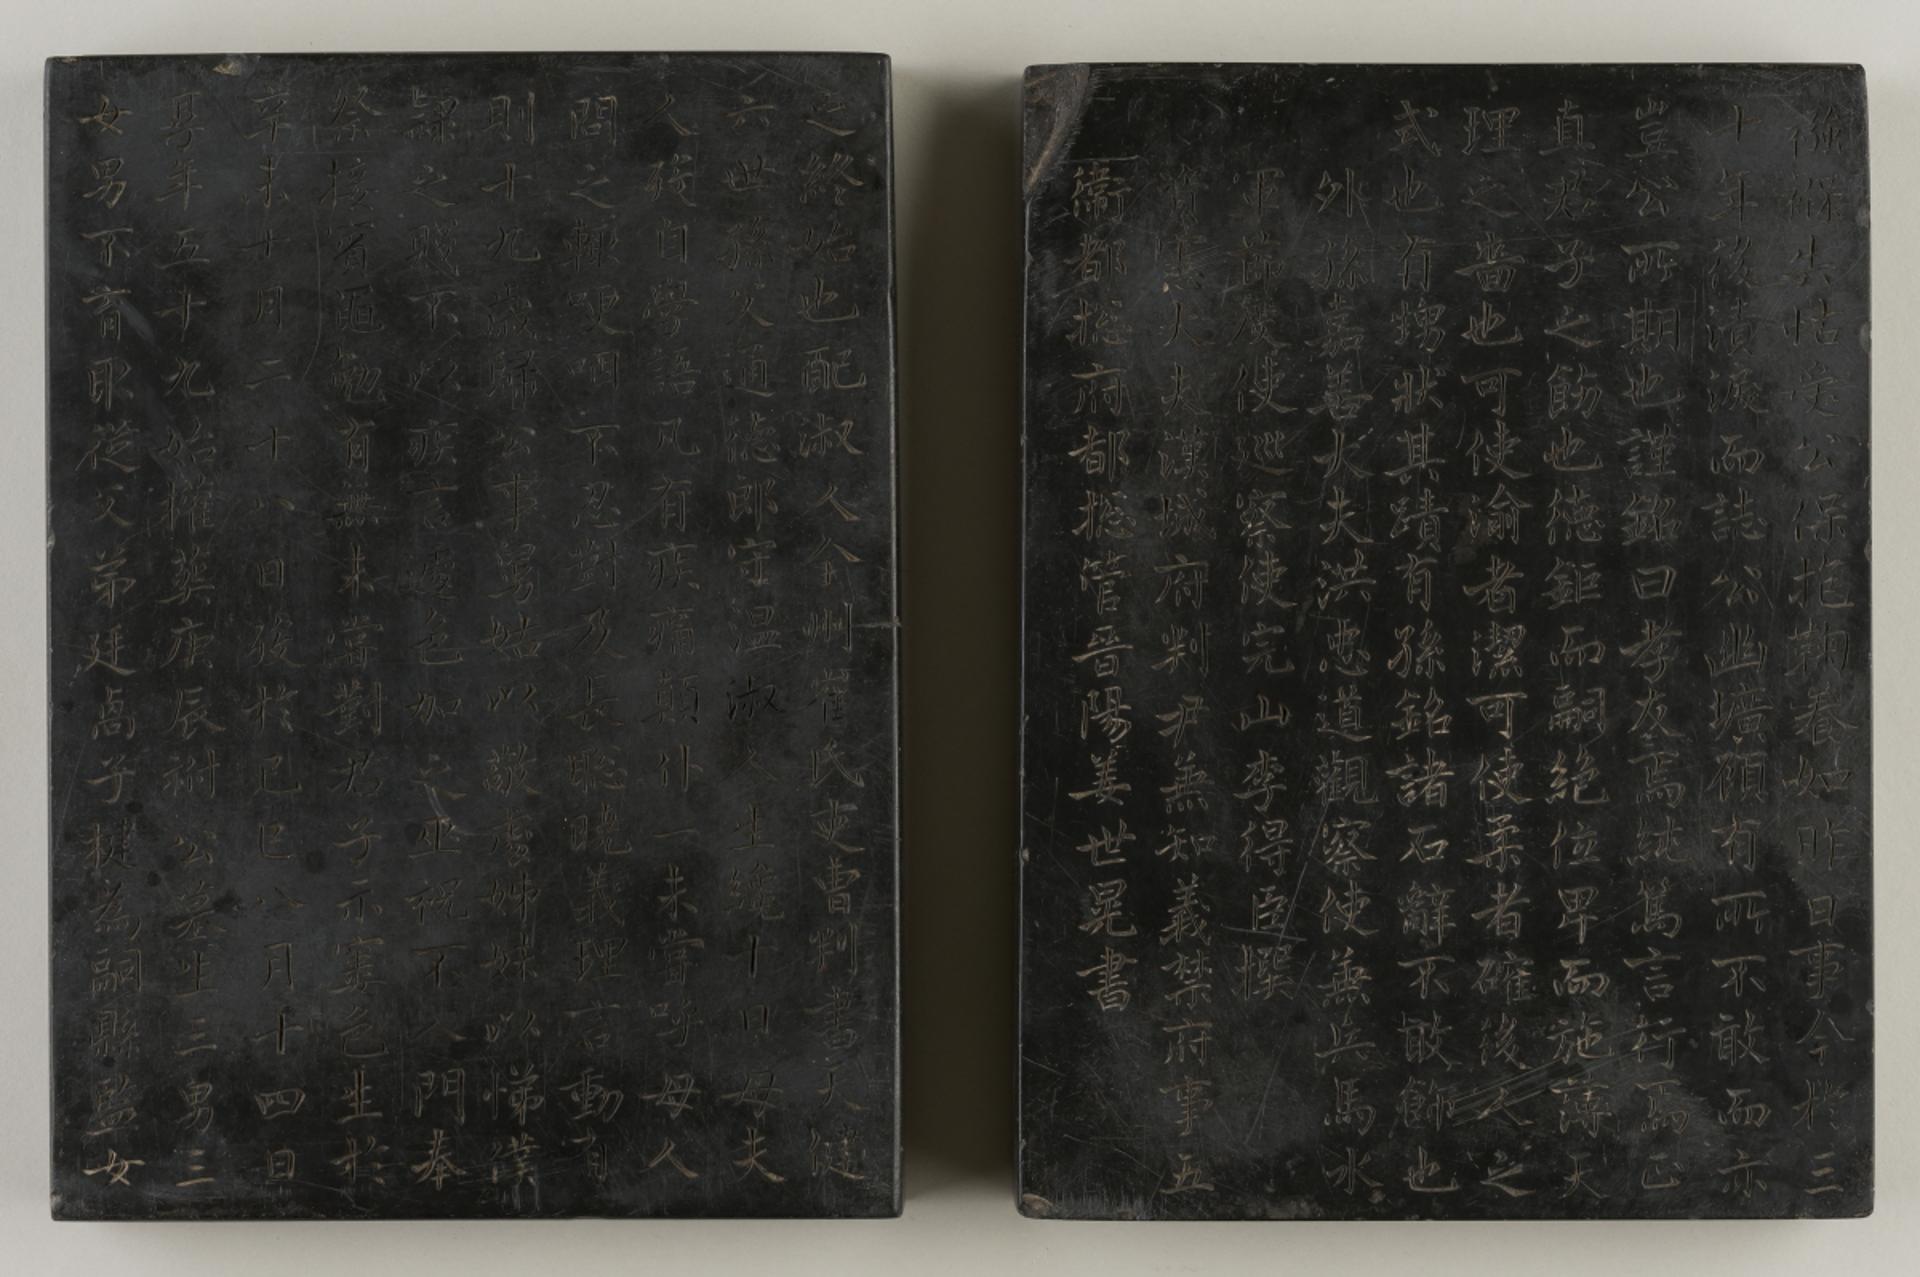 之終始也配淑人全州崔氏吏曹判書天健
六世孫父道德郎守温淑人生纔十日母夫
人歿自學語凡有疾痛顛仆一未嘗呼母人
問之輒哽咽不忍對及長聡曉義理言動有
則十九歲歸公事舅姑以敬處姊妹以悌僕
隷之賤不以疾言遽色加之巫祝不入門奉
祭接賓黽勉有無未嘗對君子示窶色生於
辛未十月二十八日歿於己巳八月十四日
享年五十九始權葬庚辰祔公墓生三男三
女男不育取從父弟廷卨子楗為嗣縣監女
襁褓失怙矣公保抱鞠養如昨日事今於三
十年後漬淚而誌公幽壙顧有所不敢而亦
豈公所期也謹銘曰孝友焉純篤言行焉正
直君子之飭也德鉅而嗣絶位卑而施薄天
理之嗇也可使渝者潔可使柔者確後人之
式也有甥狀其蹟有孫銘諸石辭不敢飾也
外孫嘉善大夫洪忠道觀察使兼兵馬水
軍節度使巡察使完山李得臣撰
資憲大夫漢城府判尹兼知義禁府事五
衛都摠府都摠管晉陽姜世晃書